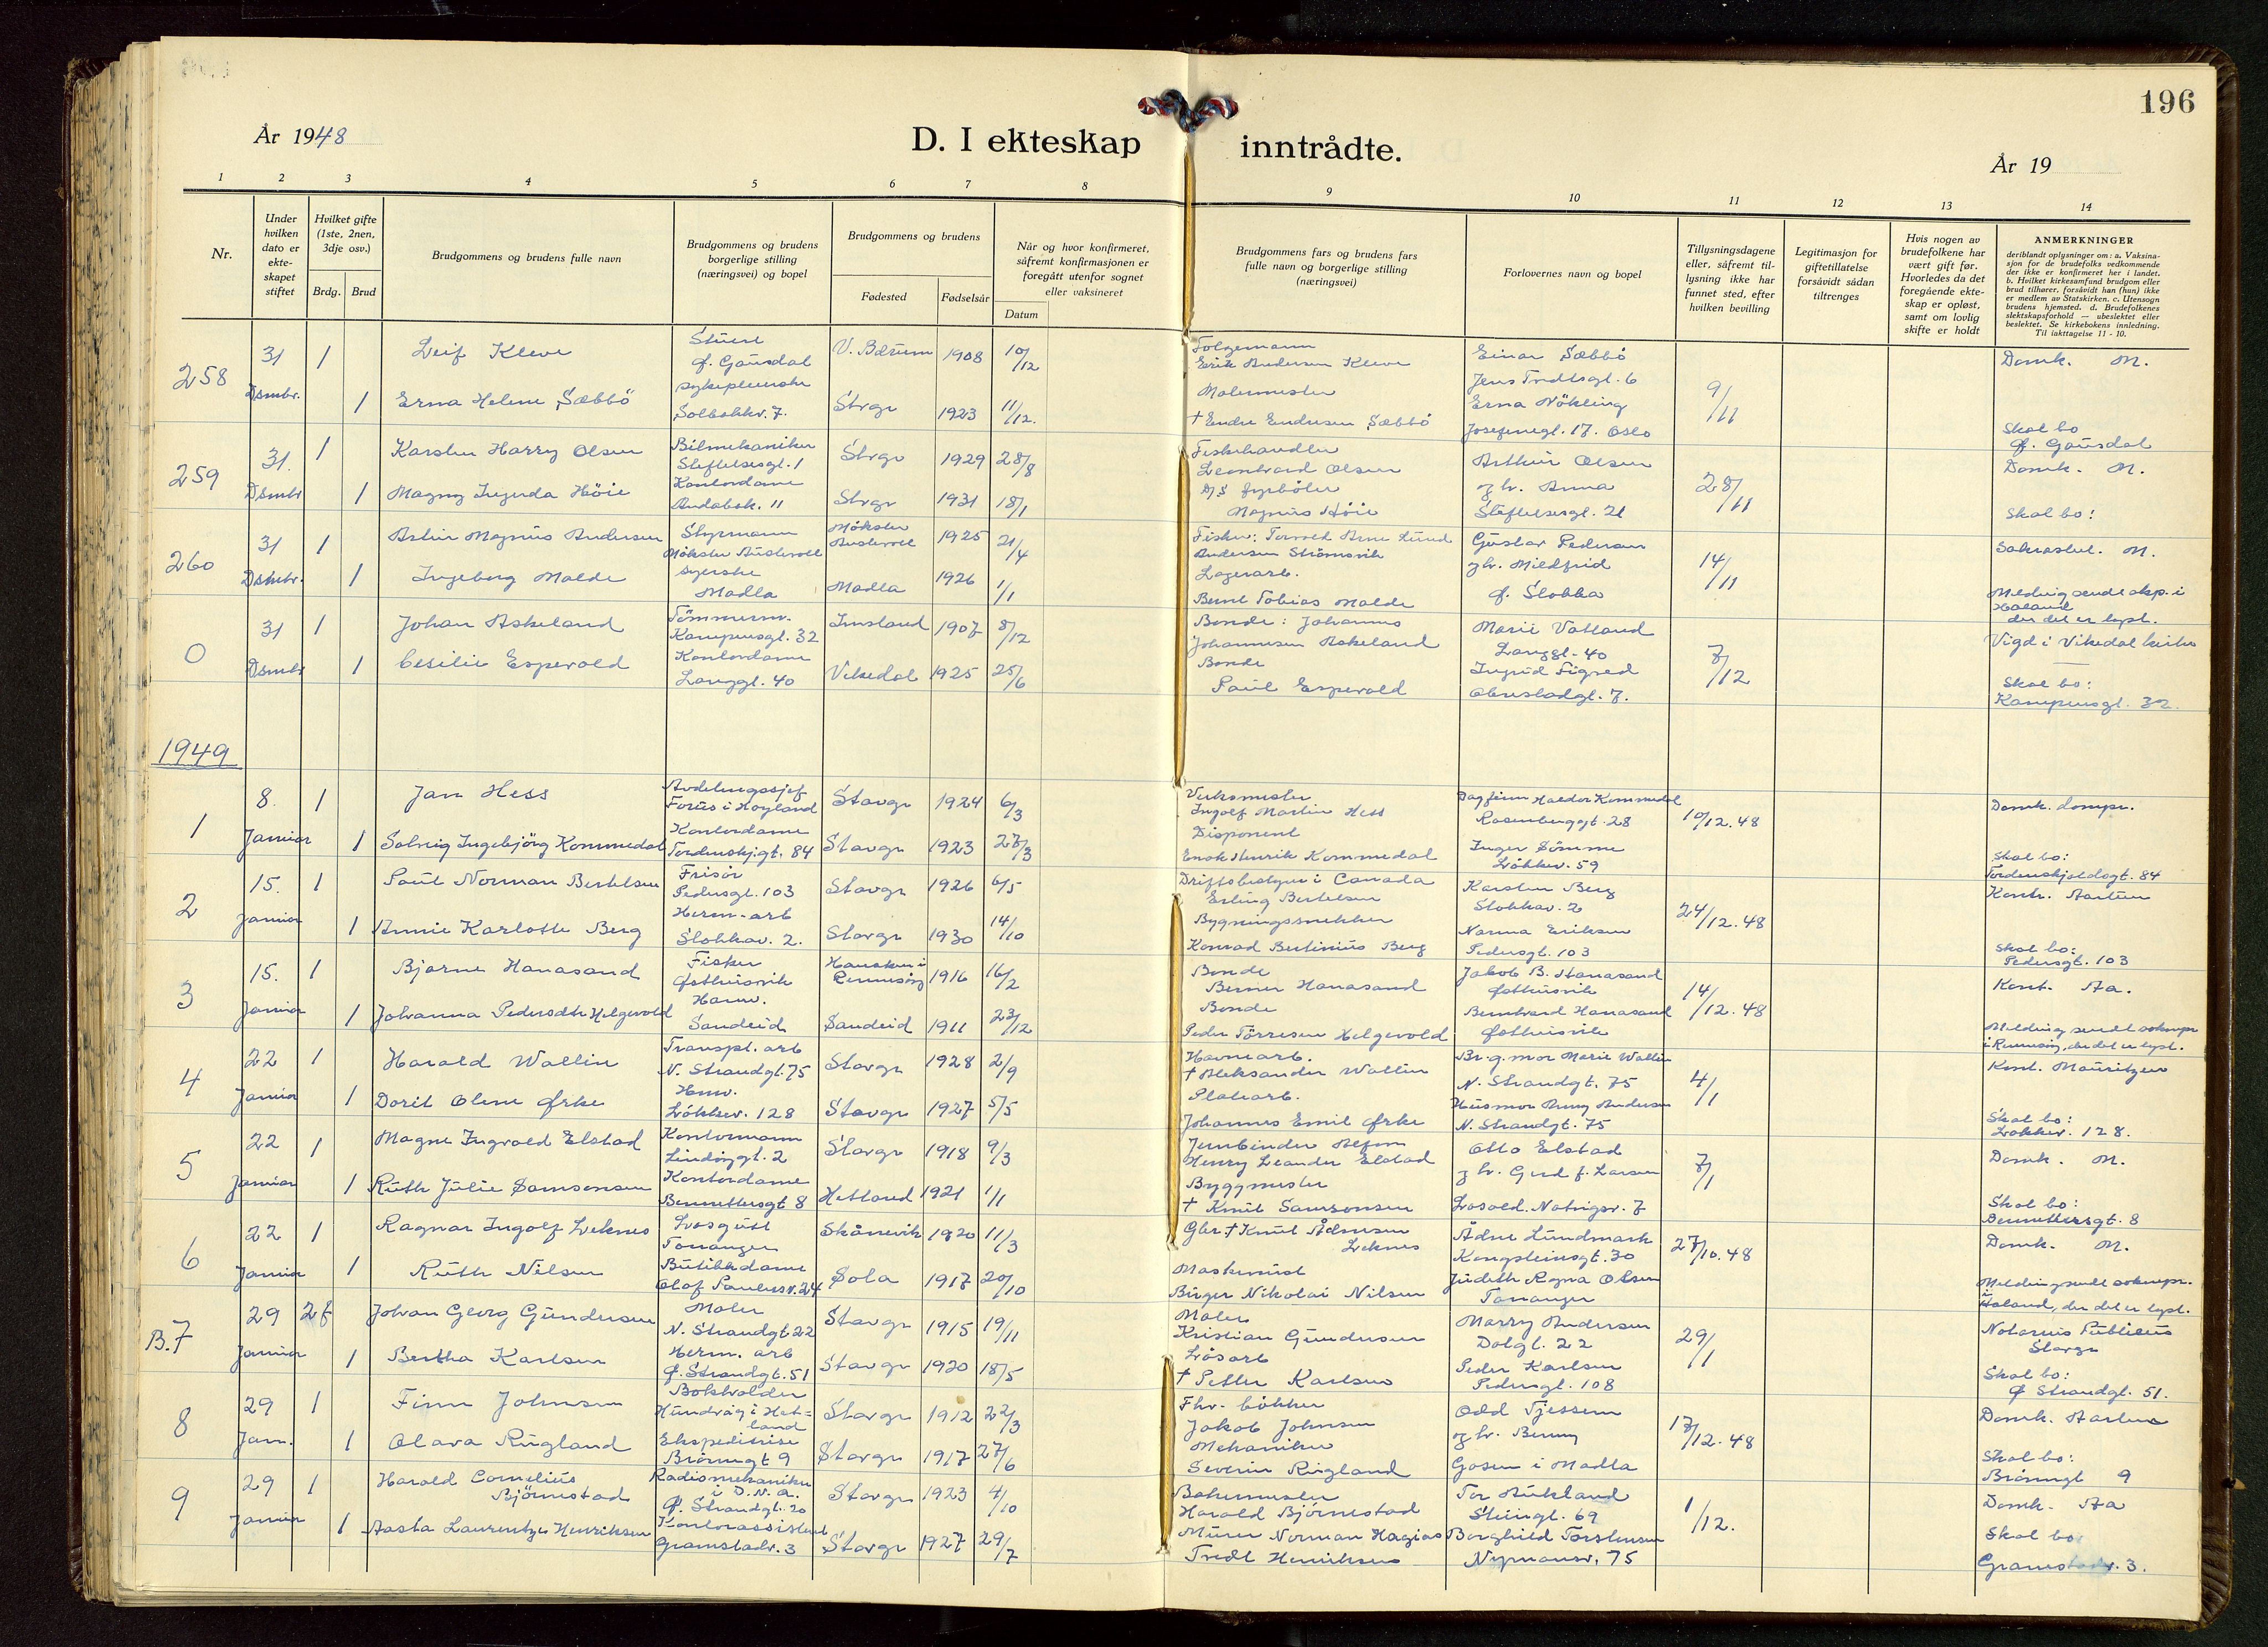 196
År 1948
D. I ekteskap inntrådte.
År 19
1 2 3 4 5 6 7 8 9 10 11 12 13 14
Nr.
Under hvilken dato er ekteskapet stiftet
Hvilket gifte (1ste, 2nen, 3dje osv.)
Brdg. Brud
Brudgommens og brudens fulle navn
Brudgommens og brudens borgerlige stilling (næringsvei) og bopel
Brudgommens og brudens
Fødested Fødselsår
Når og hvor konfirmeret, såfremt konfirmasjonen er foregått utenfor sognet eller vaksineret
Datum
Brudgommens fars og brudens fars fulle navn og borgerlige stilling (næringsvei)
Forlovernes navn og bopel
Tillysningsdagene eller, såfremt tillysning ikke har funnet sted, efter hvilken bevilling
Legitimasjon for giftetillatelse forsåvidt sådan tiltrenges
Hvis nogen av brudefolkene har vært gift før. Hvorledes da det foregående ekteskap er opløst, samt om lovlig skifte er holdt
ANMERKNINGER
deriblandt oplysninger om: a. Vaksinasjon for de brudefolks vedkommende der ikke er konfirmeret her i landet. b. Hvilket kirkesamfund brudgom eller brud tilhører, forsåvidt han (hun) ikke er medlem av Statskirken. c. Utensogn brudens hjemsted. d. Brudefolkenes slektskapsforhold — ubeslektet eller beslektet. Se kirkebokens innledning. Til iakttagelse 11 - 10.
258 31 Dsmbr. 1 Leif Kleve Stuert Ø. Gausdal V. Bærum 1908 10/12 Erik Andersen Kleve Einar Sæbbö Jens Tvedtsgt. 6 9/11 Domk. M.
1 Erna Helene Sæbbö Sykepleierske Solbakkv. 7. Stvgr 1923 11/12. Malermester † Endre Endresen Sæbbö Erna Nökling Josefinegt. 17. Oslo Skal bo Ø. Gausdal
259 31. Dsmbr 1 Karsten Harry Olsen Bilmekaniker Stiftelsesgt. 1 Stvgr 1929 28/8 Fiskehandler Leonhard Olsen Arthur Olsen 28/11 Domk. M.
1 Magny Ingerda Höie Kontordame Stvgr 1931 18/1 D/S fyrböter Magnus Höie og hr. Anna Stiftelsesgt. 21 Skal bo:
260 31 Dsmbr. 1 Artur Magnus Andersen Styrmann Mökster Austevoll Mökster Austevoll 1925 21/4 Fisker: Torvald Arne Lund Andersen Strömsvik Gustav Pedersen 14/11 M.
1 Ingeborg Malde Syerske Madla Madla 1926 1/1 Lagerarb. Bernt Tobias Malde og hr. Mildfrid Ø. Stokka Melding sendt skp. i Håland der det er lyst.
0 31 Dsmbr 1 Johan Askeland Tömmerm. Kampensgt. 32 Imsland 1907 8/12 Bonde: Johannes Johannesen Askeland Marie Vatland Langgt. 40 7/12 Vigd i Vikedal kirke
1 Cesilie Espevold Kontordame Langgt. 40 Vikedal 1925 25/6 Bonde Paul Espevold Ingrid Tigred Skal bo: Kampensgt. 32.
1949
1 8. Januar 1 Jan Hess Avdelingssjef Forus i Høyland Stavgr 1924 6/3 Verksmester Ingolf Martin Hess Dagfinn Haldor Kommedal Rosenberggt. 28 10/12.48 Domk. dompr.
1 Solveig Ingebjörg Kommedal Kontordame Tordenskjgt. 84 Stavgr 1923 27/3 Disponent Enok Henrik Kommedal Inger Sömme Lökkev. 59 Skal bo: Tordenskjoldsgt. 84
2 15. Januar 1 Paul Norman Bertelsen Frisör Pedersgt. 103 Stavgr 1926 6/5 Driftsbestyrer i Canada Erling Bertelsen Karsten Berg Stokkav. 2 24/12.48
1 Annie Karlotte Berg Herm. arb Stokkav. 2. Stavgr 1930 14/10 Bygningssnekker Konrad Bertinius Berg Norma Eriksen Pedersgt. 103 Skal bo: Pedersgt. 103
3 15. Januar 1 Bjarne Hanasand Fisker Østhusvik Hausken i Rennesöy 1916 16/2 Bonde Berner Hanasand Jakob B. Hanasand Østhusvik 14/12.48 Kont. Aa.
1 Johanna Pedersdtr Helgevold Sandeid Sandeid 1911 23/12 Bonde Peder Törresen Helgevold Berntvard Hanasand Østhusvik Melding sendt soknepr i Rennesöy, der det er lyst.
4 22 Januar 1 Harald Wallin Transpt. arb N. Strandgt. 75 Stavgr 1928 2/9 Havnearb. † Aleksander Wallin Br.g.mor Marie Wallin N. Strandgt. 75 4/1 Kont. Mauritzen
1 Dorit Olene Ørke Husv. Lökkev. 128 Stavgr 1927 5/5 Platearb. Johannes Emil Ørke Husmor Anny Andersen N. Strandgt. 75 Skal bo: Lökkev. 128.
5 22 Januar 1 Magne Ingvald Elstad Kontormann Lindöygt. 2 Stavgr 1918 9/3 Jernbinder Henry Leander Elstad Otto Elstad og hr. Gerd f. Larsen 7/1 Domk. M.
1 Ruth Julie Samsonsen Kontordame Bennettersgt 8 Hetland 1921 1/1 Byggmester † Knut Samsonsen Skal bo: Bennettersgt. 8
6 22 Januar 1 Ragnar Ingolf Leknes Losgutt Tananger Skånevik 1920 11/3 Gbr † Knut Ådnesen Leknes Ådne Lundmark Kongsteinsgt. 30 27/10.48 Domk. M.
1 Ruth Nilsen Butikkdame Olaf Paulusv. 24 Sola 1917 20/10 Maskinist Birger Nikolai Nilsen Judith Ragna Olsen Tananger Melding sendt soknepr. i Håland, der det er lyst.
B.7 29 Januar 2f Johan Georg Gundersen Maler N. Strandgt. 22 Stavgr 1915 19/11 Maler Kristian Gundersen Marry Andersen Dalgt. 22 29/1 Notarius Publicus Stavgr
1 Bertha Karlsen Herm. arb Ø. Strandgt. 51 Stavgr 1920 18/5 Lösarb † Petter Karlsen Peder Karlsen Pedersgt. 108 Skal bo: Ø Strandgt. 51.
8 29 Jan. 1 Finn Johnsen Bokholder Hundvåg i Hetland Stavgr 1912 22/3 Fhv. bökker Jakob Johnsen Odd Tjessem 17/12.48 Domk.
1 Olava Rugland Ekspeditrise Brönngt 9 Stavgr 1917 27/6 Mekaniker Severin Rugland og hr. Benny Gosen i Madla Skal bo: Brönngt 9
9 29 Januar 1 Harald Cornelius Björnestad Radiomekaniker i D.N.A. Ø. Strandgt. 20 Stavgr 1923 4/10 Bakermester Harald Björnestad Tor Aukland Steingt. 69 1/12. Domk. Aa
1 Aasta Laurentze Henriksen Kontorassistent Gramstadv. 3 Stavgr 1927 29/7 Murer Norman Hagias Tvedt Henriksen Borghild Torstensen Nymansv. 75 Skal bo Gramstadv. 3.